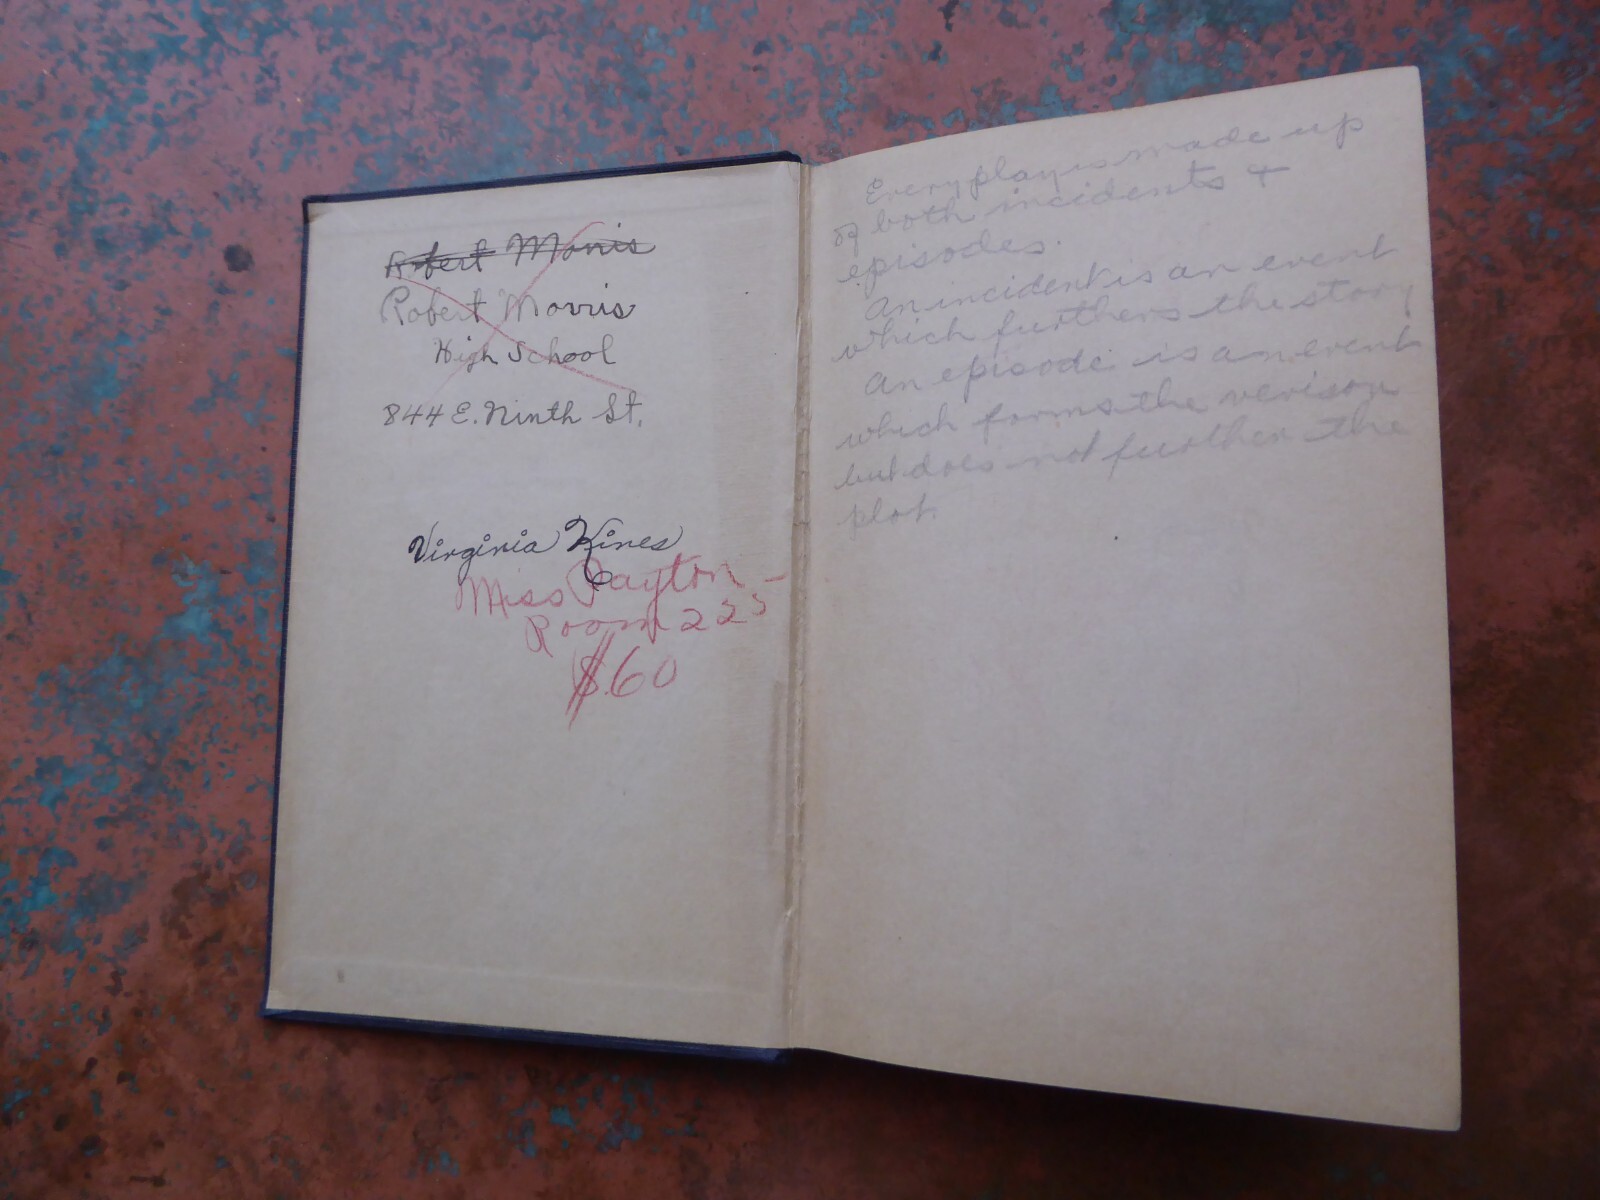 Robert Morris
Robert Morris
High School
844 E. Ninth St.
Virginia Hines
Miss Payton -
Room 225
$.60
Every play is made up
of both incidents &
episodes.
An incident is an event
which furthers the story
An episode is an event
which forms the verison
but does not further the
plot.